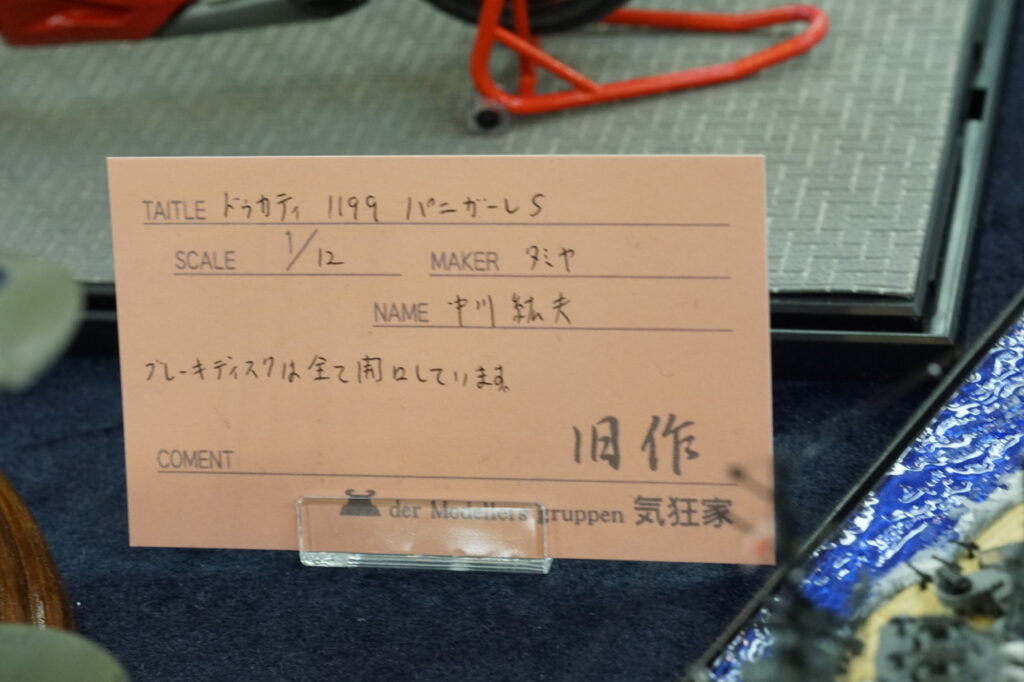 TAITLE ドゥカティ 1199 パニガーレS
SCALE 1/12 MAKER タミヤ
NAME 中川 紘夫
ブレーキディスクは全て開口しています。
旧作
COMENT
der Modellers gruppen 気狂家